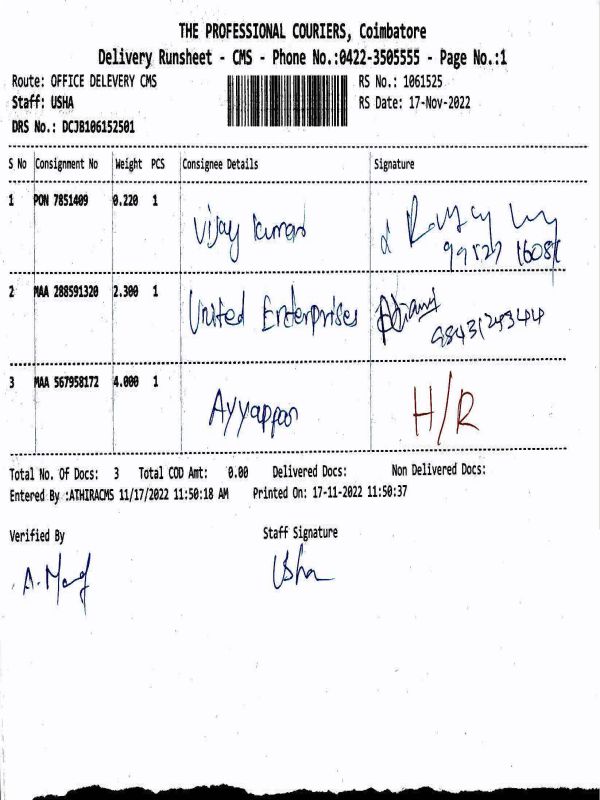 THE PROFESSIONAL COURIERS, Coimbatore
Delivery Runsheet - CMS - Phone No.:0422-3505555 - Page No.:1
Route: OFFICE DELEVERY CMS RS No.: 1061525
Staff: USHA RS Date: 17-Nov-2022
DRS No.: DCJB106152501
S No Consignment No Weight PCS Consignee Details Signature
1 PON 7851409 0.220 1 Vijay kumar
2 MAA 288591320 2.300 1 United Enterprises 9843129344
3 MAA 567958172 4.000 1 Ayyappan H/R
Total No. Of Docs: 3 Total COD Amt: 0.00 Delivered Docs: Non Delivered Docs:
Entered By :ATHIRACMS 11/17/2022 11:50:18 AM Printed On: 17-11-2022 11:50:37
Verified By Staff Signature
Usha